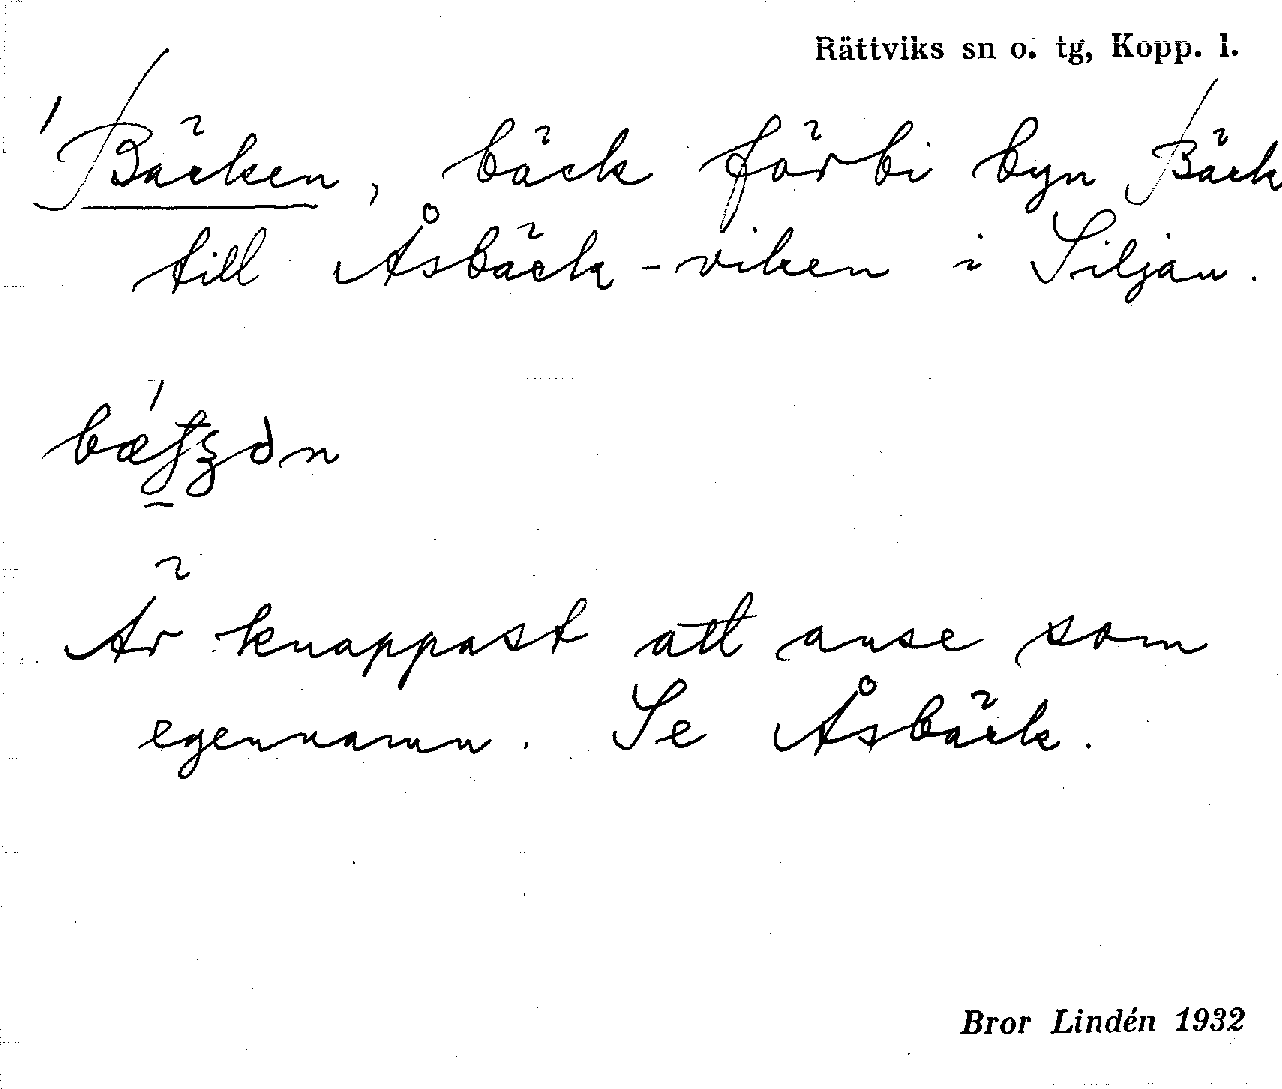 Rättviks sn o. tg, Kopp. l.
Bäcken, bäck förbi byn Bäck
till Åsbäck-viken i Siljan.
Är knappast att anse som
egennamn. Se Åsbäck.
Bror Lindén 1932